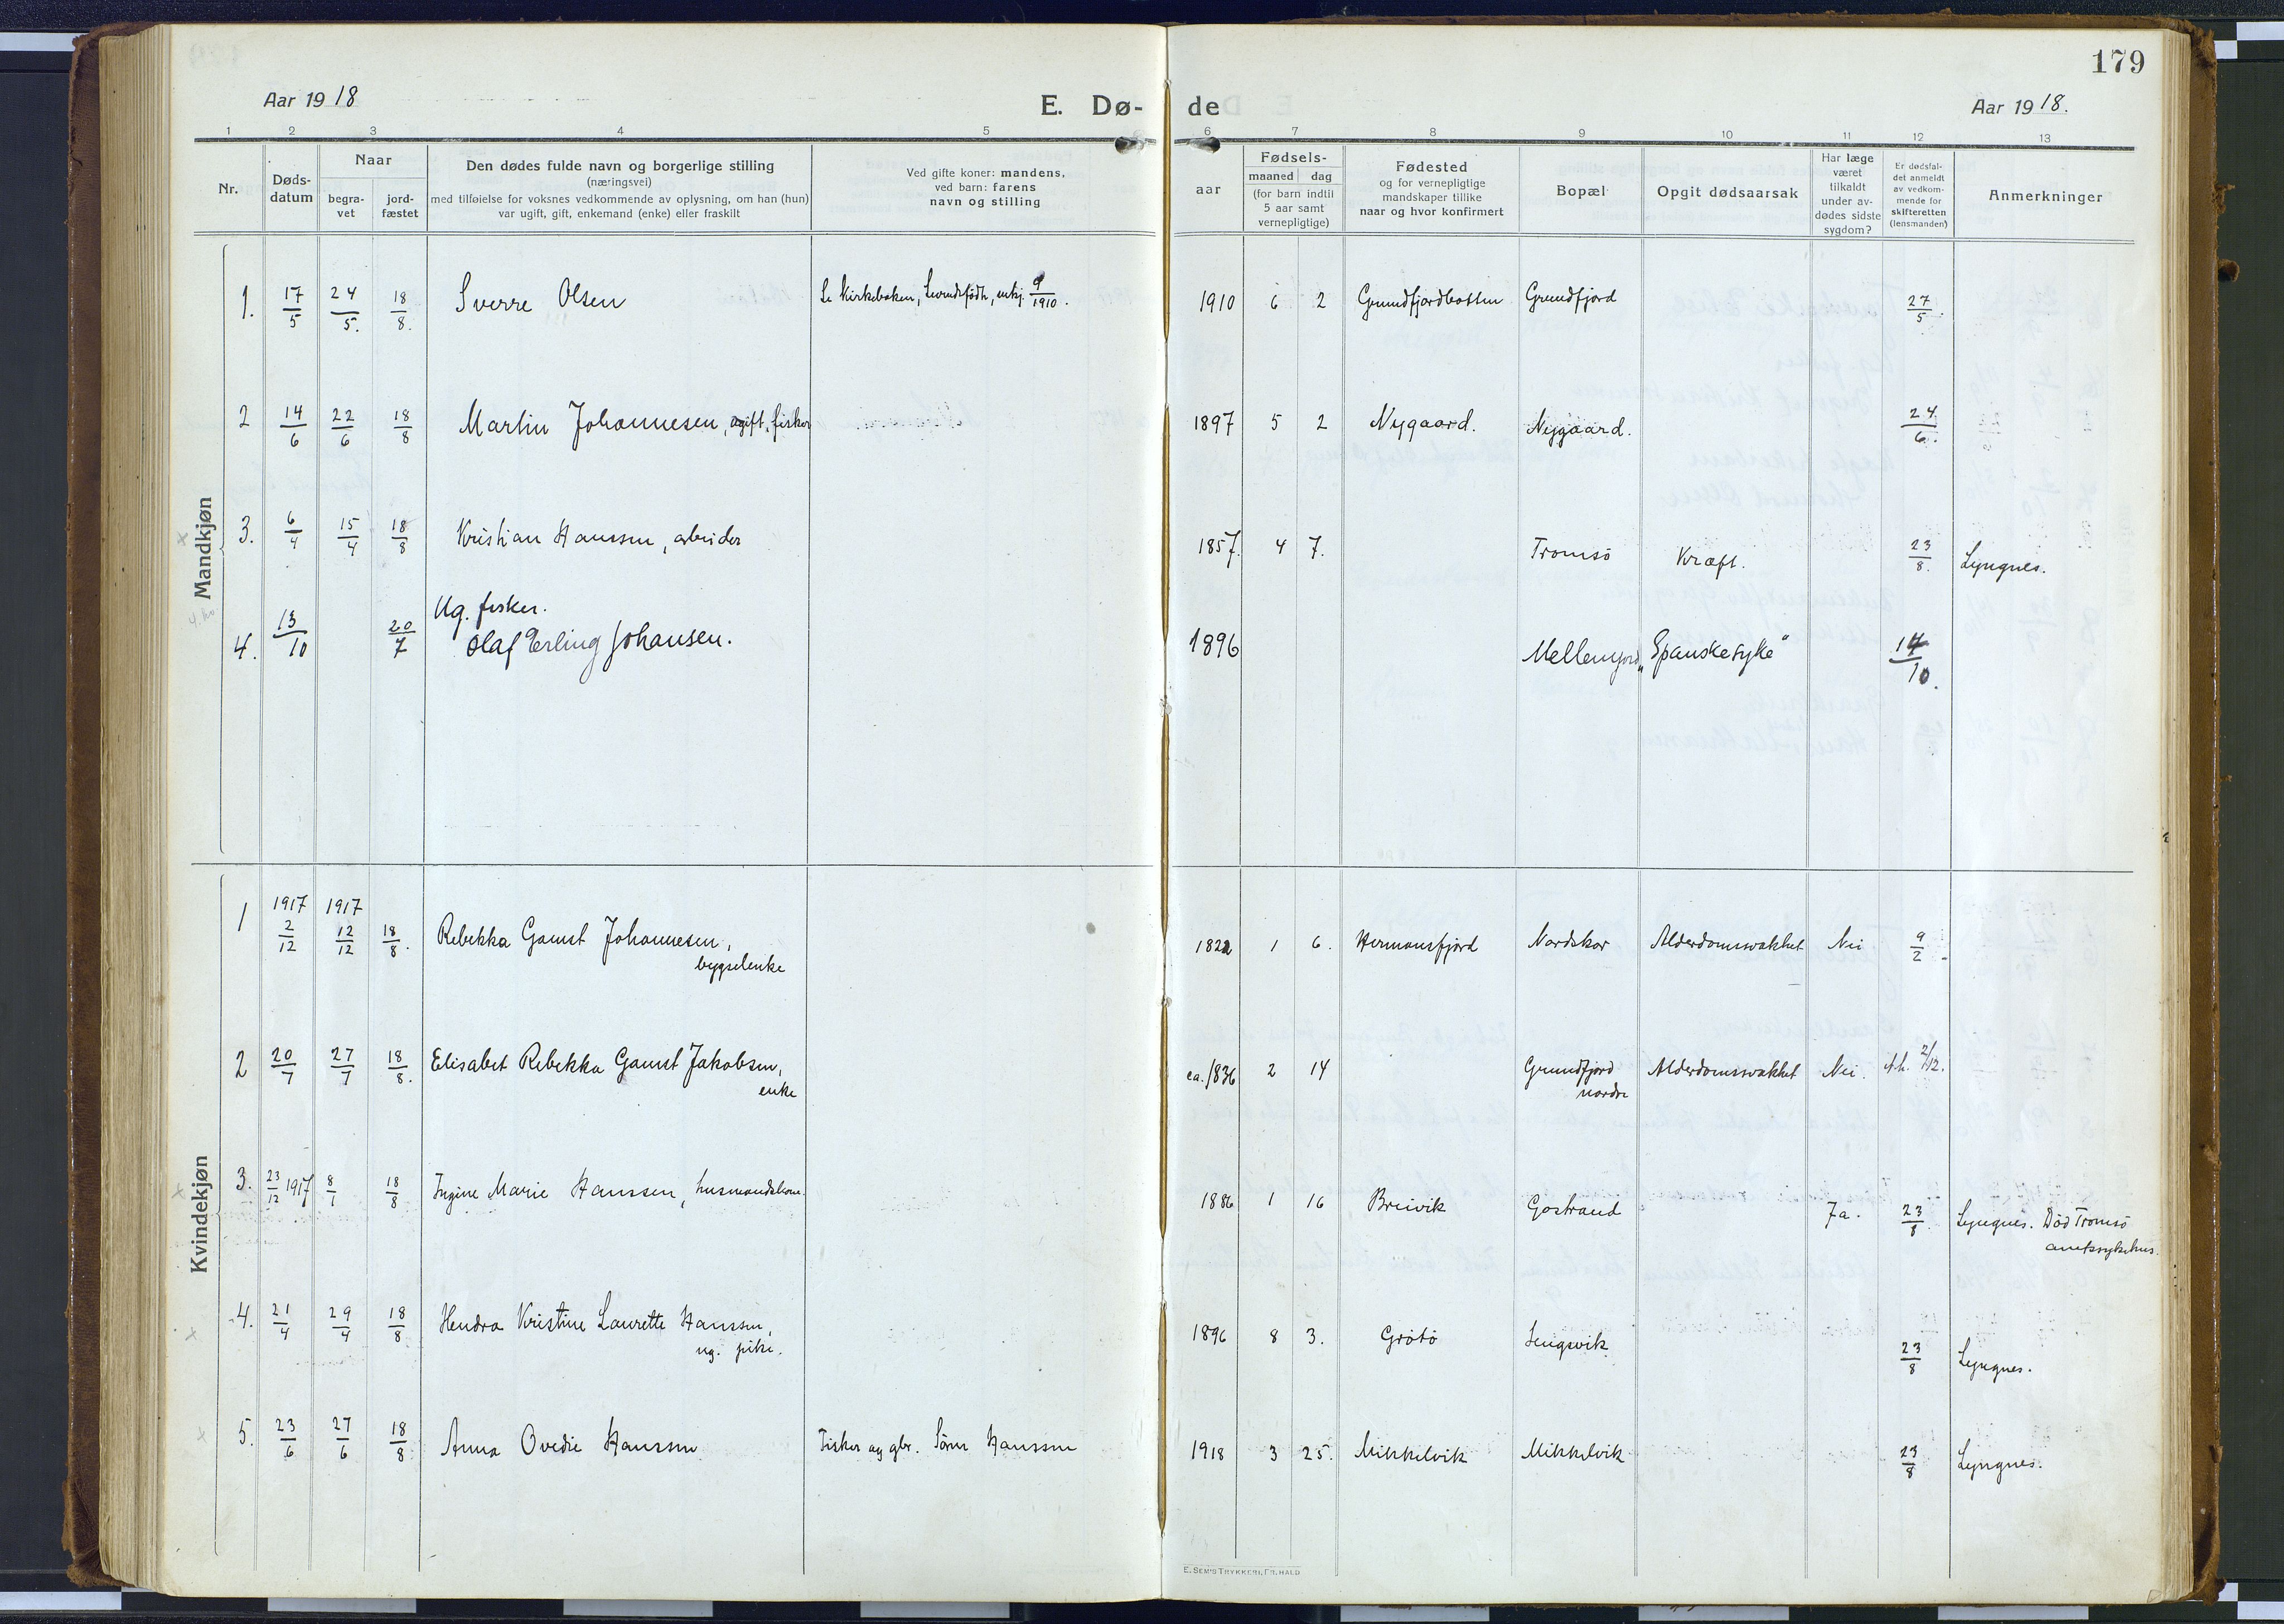 179
Aar 1918
E. Dø-
de
Aar 1918.
1 2 3 4 5 6 7 8 9 10 11 12 13
Nr.
Døds-
datum
Naar
begra-
vet
jord-
fæstet
Den dødes fulde navn og borgerlige stilling
(næringsvei)
med tilføielse for voksnes vedkommende av oplysning, om han (hun)
var ugift, gift, enkemand (enke) eller fraskilt
Ved gifte koner: mandens,
ved barn: farens
navn og stilling
aar
Fødsels-
maaned dag
(for barn indtil
5 aar samt
vernepligtige)
Fødested
og for vernepligtige
mandskaper tillike
naar og hvor konfirmert
Bopæl
Opgit dødsaarsak
Har læge
været
tilkaldt
under av-
dødes sidste
sygdom?
Er dødsfal-
det anmeldt
av vedkom-
mende for
skifteretten
(lensmanden)
Anmerkninger
Mandkjøn
1. 17/5 24/5. 18/8. Sverre Olsen Se kirkeboken, Levendefødte, 9/1910. 1910 6 2 Grundfjordbotten Grundfjord 27/5.
2 14/6 22/6 18/8 Martin Johannesen, ugift, fisker 1897 5 2 Nygaard. Nygaard. 24/6.
3. 6/4 15/4 18/8 Kristian Hanssen, arbeider 1857. 4 7. Tromsö Kræft. 23/8. Lyngnes.
Ug. fisker.
4. 13/10 20/7 Olaf Erling Johansen. 1896 Mellemjord „Spanskesyke" 14/10.
Kvindekjøn
1 1917 2/12 1917 12/12 18/8. Rebekka Gamst Johannesen,
bygselenke
1822 1 6. Hermansfjord Nordskar Alderdomssvakhet Nei 9/2
2 20/7 27/7 18/8. Elisabet Rebekka Gamst Jakobsen,
enke
ca. 1836 2 14 Grundfjord
nordre
Alderdomssvakhet Nei. 2/12.
3. 23/12 1917 8/1 18/8 Ingine Marie Hanssen, husmandskone. 1886 1 16 Breivik Gåstrand Ja. 23/8 Lyngnes. Död Tromsö
amtssykehus.
4. 21/4 29/4 18/8 Hendra Kristine Laurette Hanssen,
ug. pike.
1896 8 3. Grötö Lengsvik 23/8 Lyngnes.
5. 23/6 27/6 18/8 Anna Ovedie Hanssen Fisker og gbr. Sören Hanssen 1918 3 25. Mikkelvik Mikkelvik 23/8 Lyngnes.
E. SEM'S TRYKKERI, FR.HALD